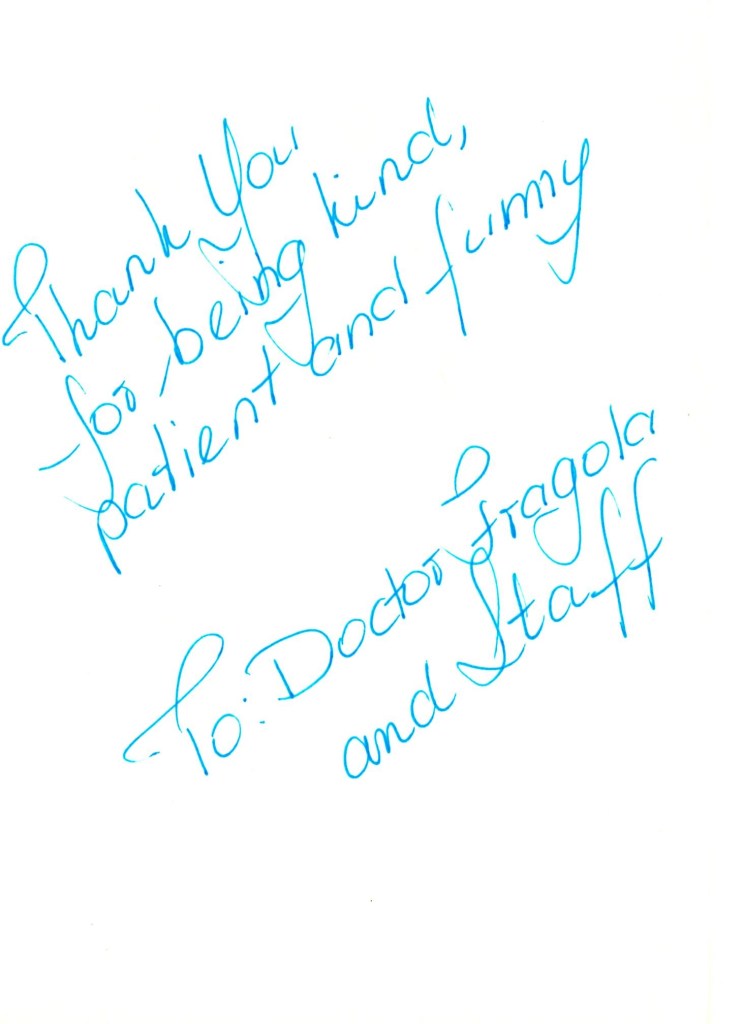 Thank You
for being kind,
patient and funny
To: Doctor Fragola
and Staff